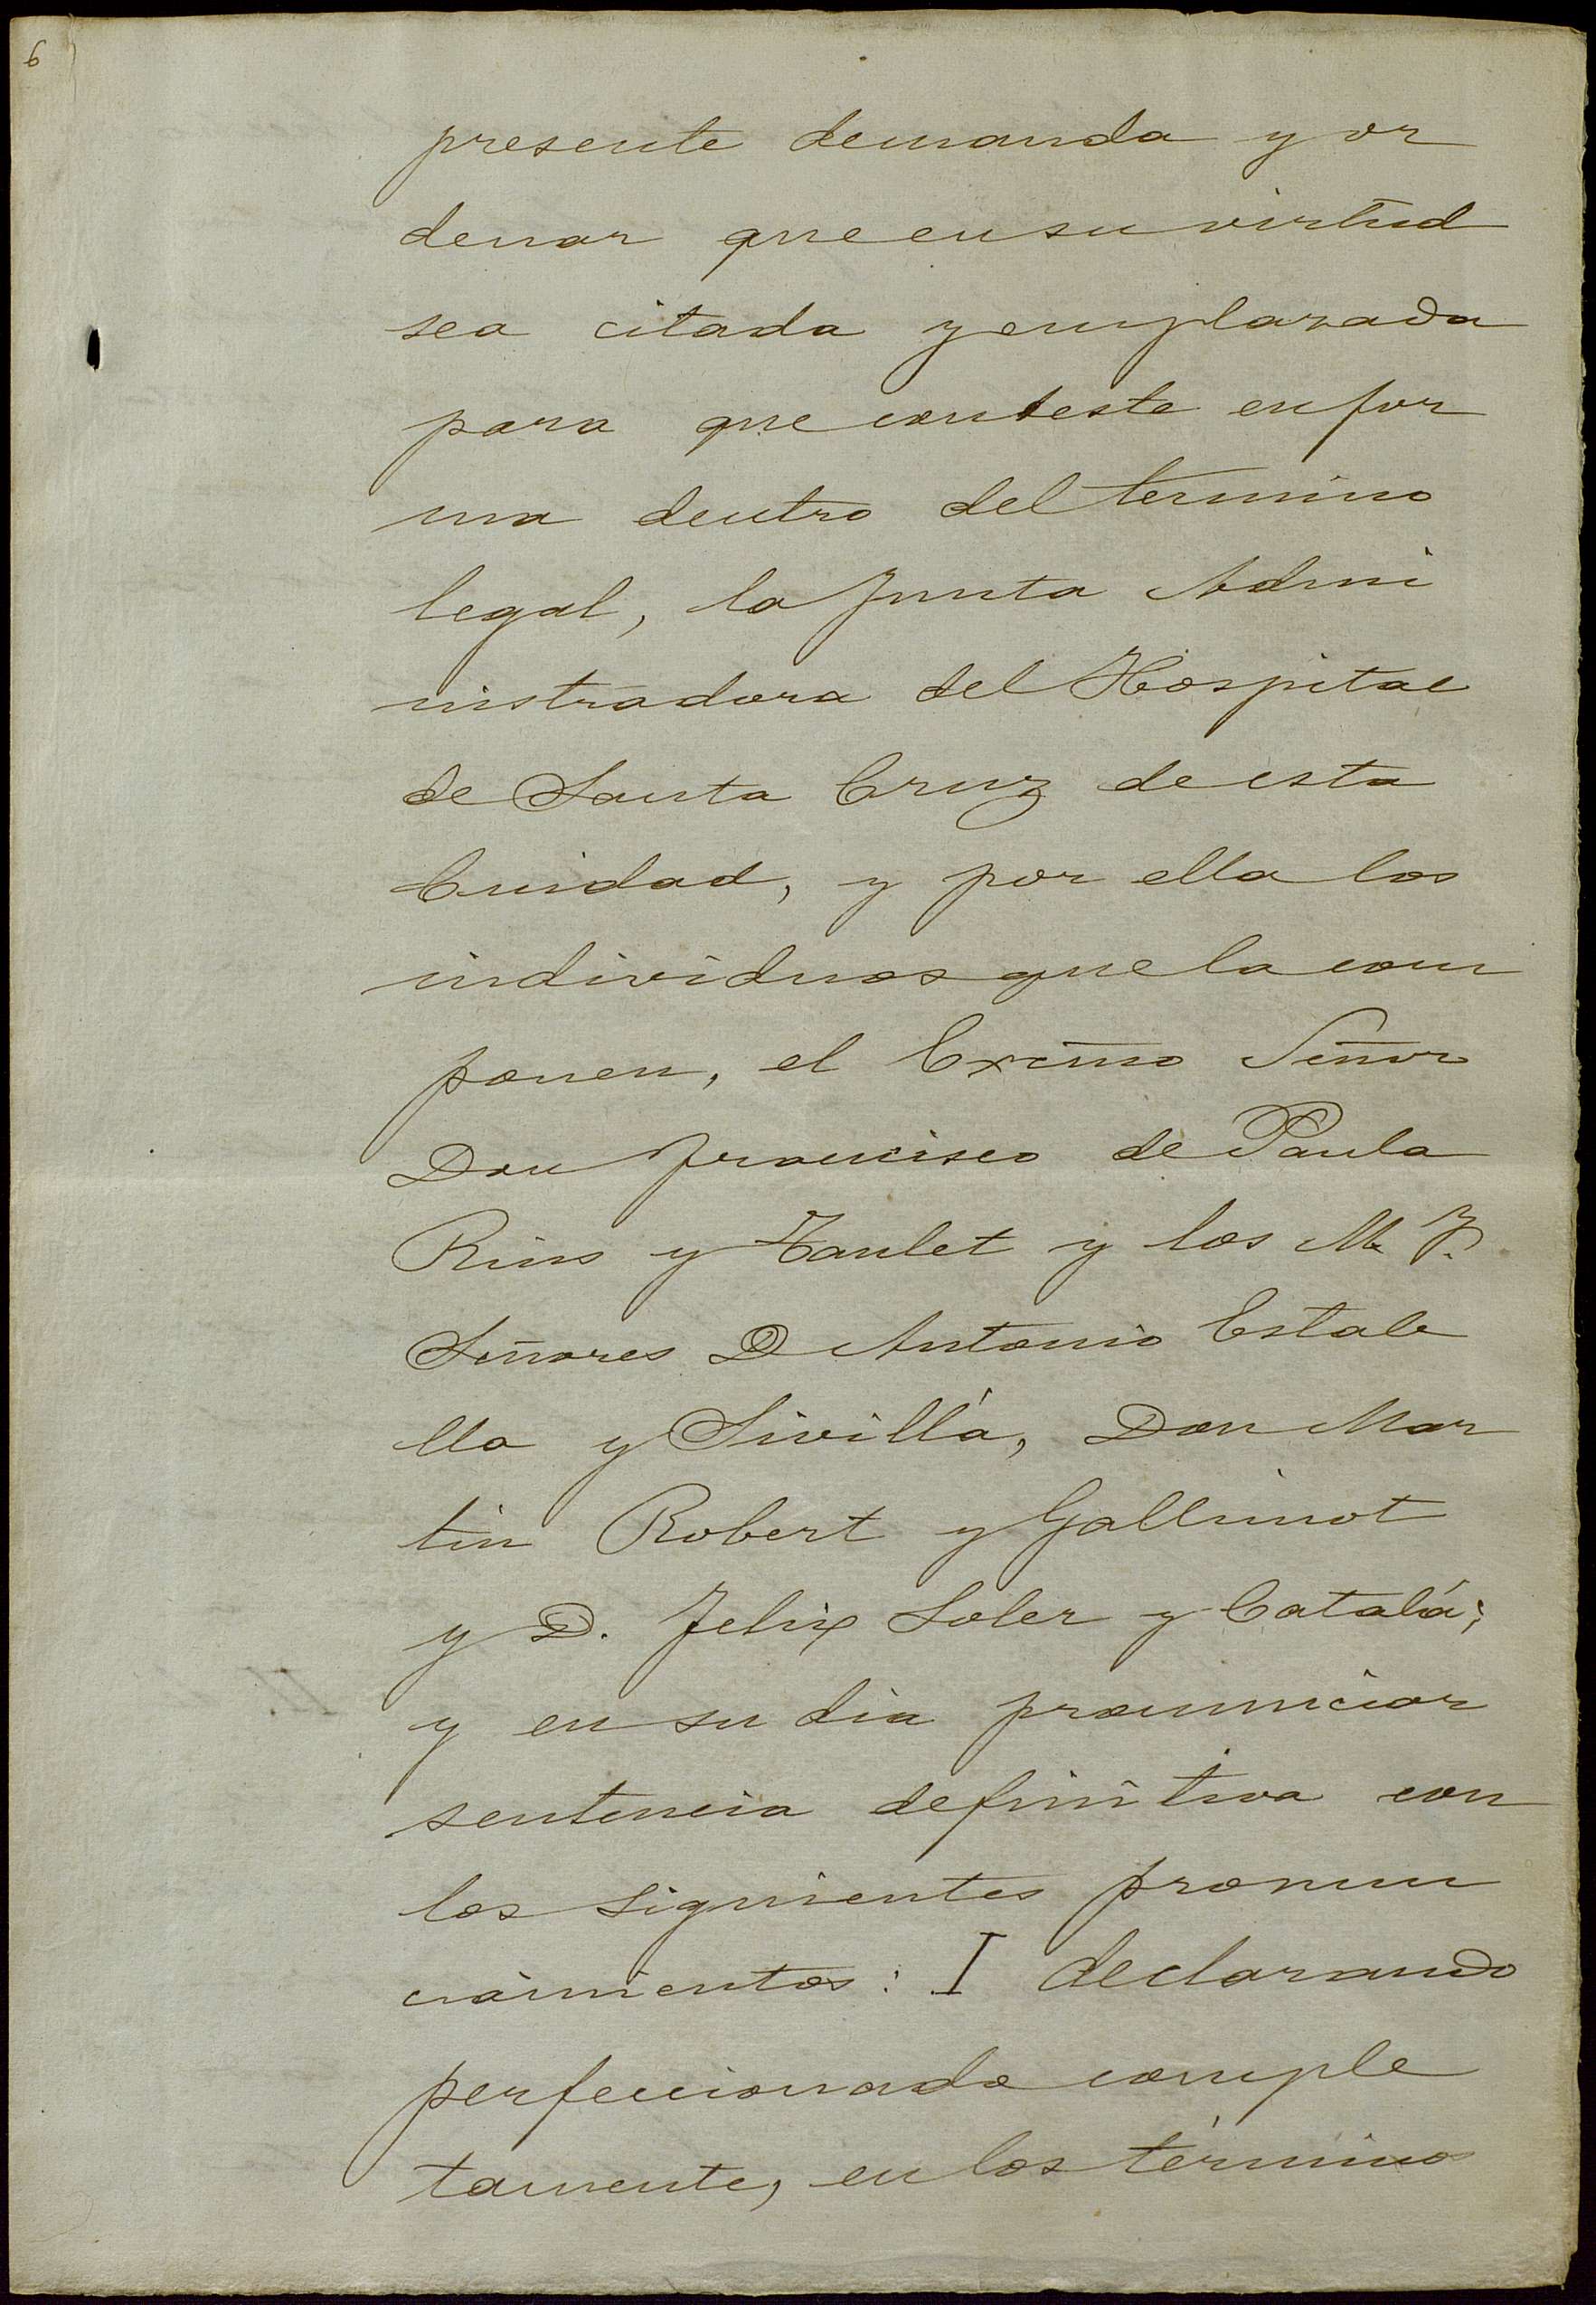 6
presente demanda y or
denar que en su virtud
sea citada y emplazada
para que conteste en for
ma dentro del termino
legal, la Junta Admi
nistradora del Hospital
de Santa Cruz de esta
Ciudad, y por ella los
individuos que la com
ponen, el Excmo Señor
Don Francisco de Paula
Rius y Taulet y los M. J.
Señores D Antonio Estale
lla y Sivillá, Don Mar
tin Robert y Gallimot
y D. Felix Soler y Catalá;
y en su dia pronunciar
sentencia definitiva con
los siguientes pronun
ciamientos: I declarando
perfeccionada comple
tamente, en los términos